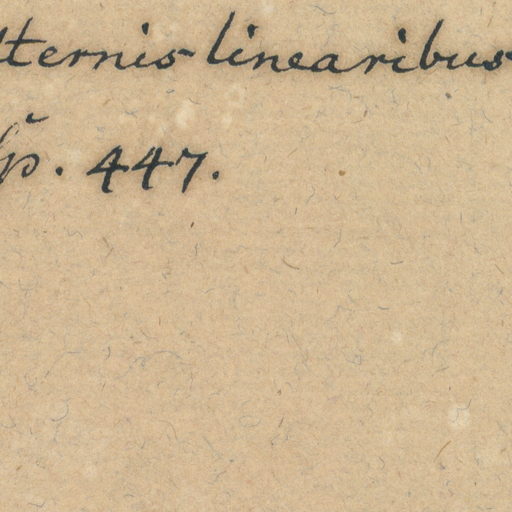 lternis linearibus
Sp. 447.